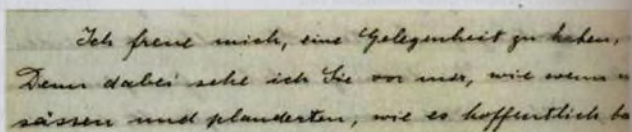 Ich freue mich, eine Gelegenheit zu haben,
Denn dabei sehe ich Sie vor mir, wie wenn
sässen und plauderten, wie es hoffentlich